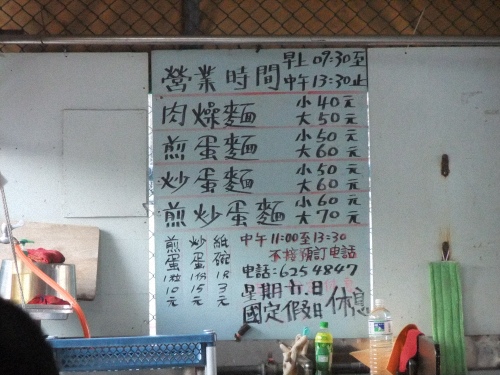 營業時間 早上 07:30 至
中午 13:30 止
肉燥麵 小 40 元
大 50 元
煎蛋麵 小 50 元
大 60 元
炒蛋麵 小 50 元
大 60 元
煎炒蛋麵 小 60 元
大 70 元
煎蛋 1粒 10元
炒蛋 1份 15元
紙碗 1個 3元
中午 11:00 至 13:30
不接預訂電話
電話:6254847
星期六.日
國定假日 休息